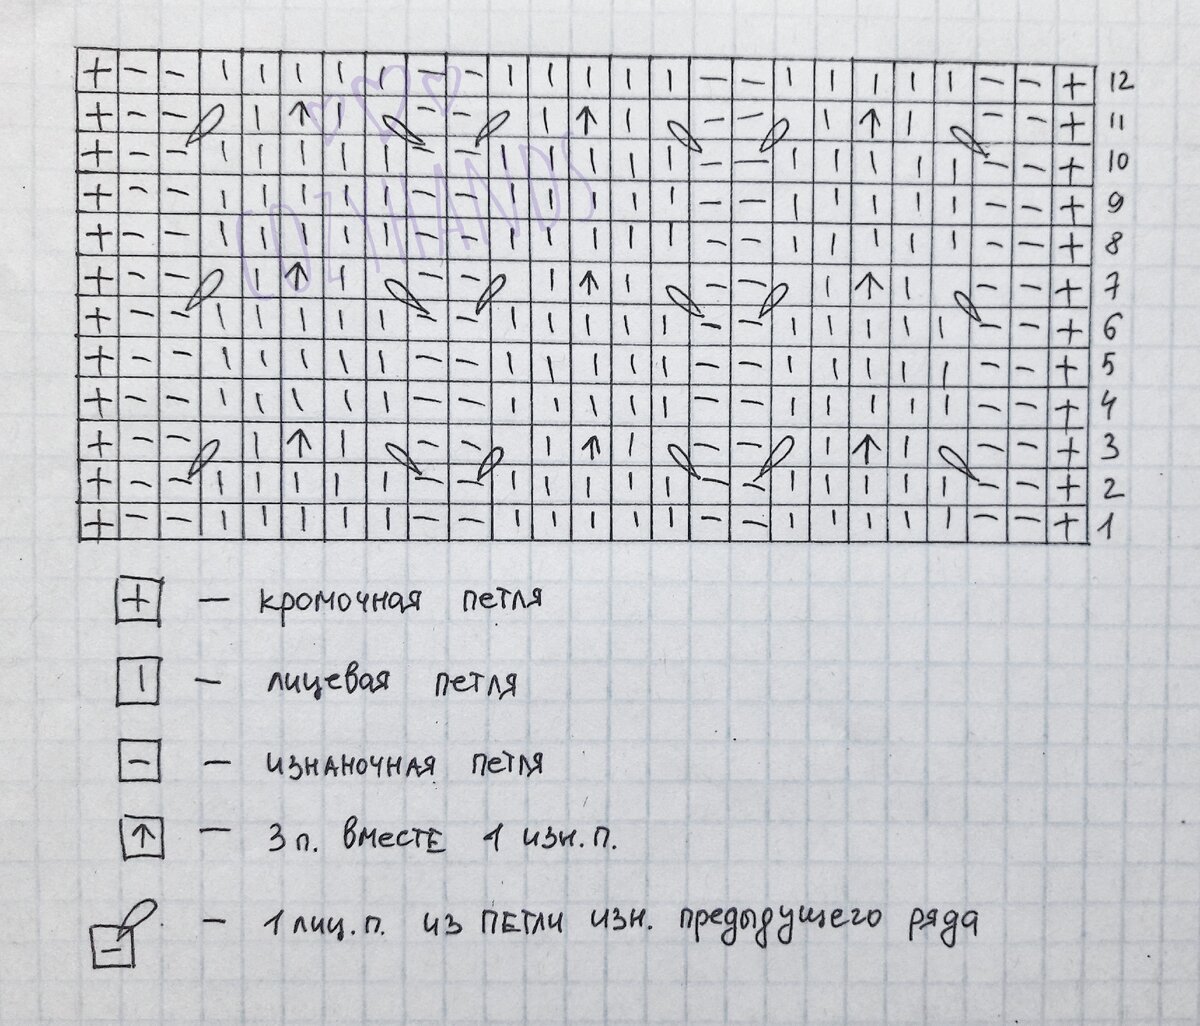 12
11
10
COZYHANDS
9
8
7
6
5
4
3
2
1
+ – кромочная петля
| – лицевая петля
- – изнаночная петля
↑ – 3 п. вместе 1 изн. п.
- – 1 лиц. п. из петли изн. предыдущего ряда